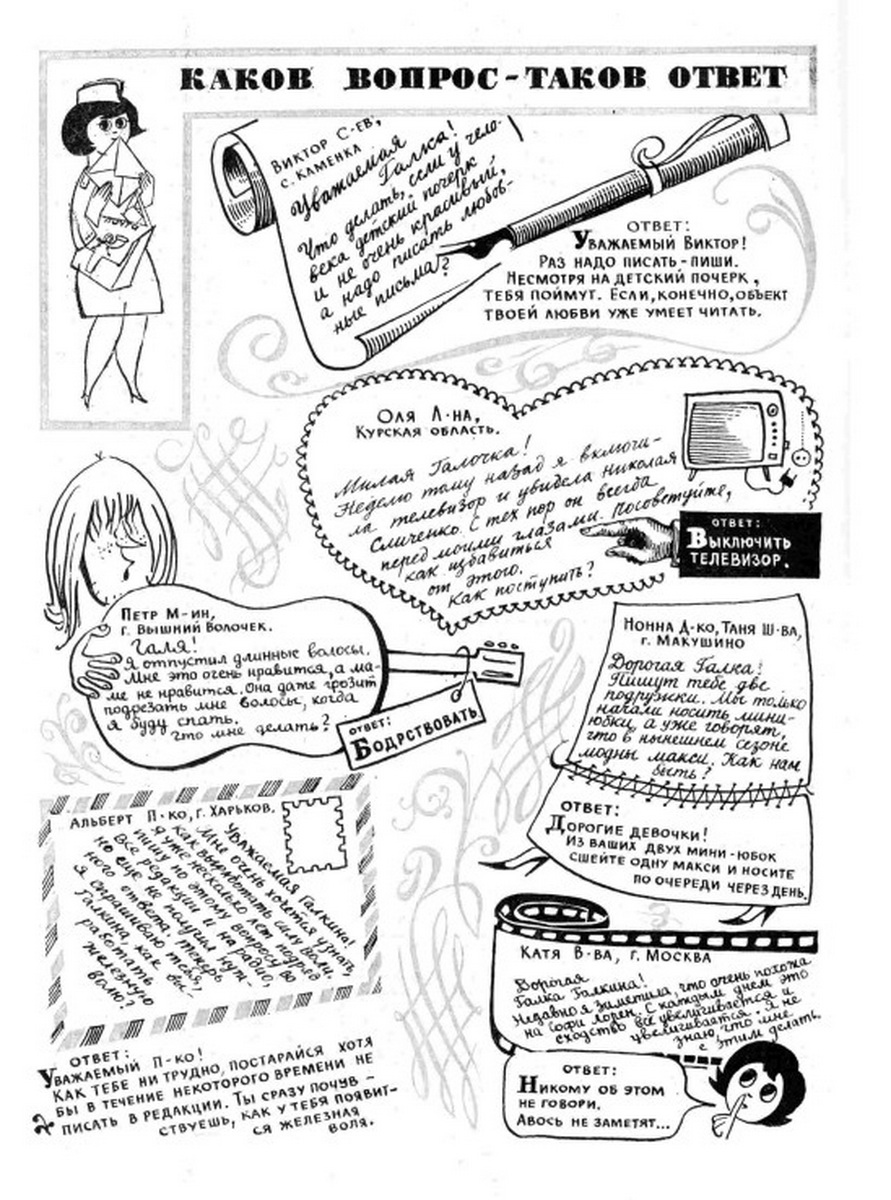 КАКОВ ВОПРОС-ТАКОВ ОТВЕТ
ПОЧТА
ВИКТОР С-ЕВ,
С. КАМЕНКА
Уважаемая
Галка!
Что делать, если у чело-
века детский почерк
и не очень красивый,
а надо писать любов-
ные письма?
ОТВЕТ:
УВАЖАЕМЫЙ ВИКТОР!
РАЗ НАДО ПИСАТЬ-ПИШИ.
НЕСМОТРЯ НА ДЕТСКИЙ ПОЧЕРК,
ТЕБЯ ПОЙМУТ. ЕСЛИ, КОНЕЧНО, ОБЪЕКТ
ТВОЕЙ ЛЮБВИ УЖЕ УМЕЕТ ЧИТАТЬ.
ОЛЯ Л-НА,
КУРСКАЯ ОБЛАСТЬ.
Милая Галочка!
Неделю тому назад я включи-
ла телевизор и увидела Николая
Сличенко. С тех пор он всегда
перед моими глазами. Посоветуйте,
как избавиться
от этого.
Как поступить?
ОТВЕТ:
ВЫКЛЮЧИТЬ
ТЕЛЕВИЗОР.
ПЕТР М-ИН,
Г. ВЫШНИЙ ВОЛОЧЕК.
Галя!
Я отпустил длинные волосы.
Мне это очень нравится, а ма-
ме не нравится. Она даже грозит
подрезать мне волосы, когда
я буду спать.
Что мне делать?
ОТВЕТ:
БОДРСТВОВАТЬ
НОННА Д-КО, ТАНЯ Ш-ВА,
Г. МАКУШИНО
Дорогая Галка!
Пишут тебе две
подружки. Мы только
начали носить мини-
юбки, а уже говорят,
что в нынешнем сезоне
модны макси. Как нам
быть?
ОТВЕТ:
ДОРОГИЕ ДЕВОЧКИ!
ИЗ ВАШИХ ДВУХ МИНИ-ЮБОК
СШЕЙТЕ ОДНУ МАКСИ И НОСИТЕ
ПО ОЧЕРЕДИ ЧЕРЕЗ ДЕНЬ.
АЛЬБЕРТ П-КО, Г. ХАРЬКОВ.
Уважаемая Галкина!
Мне очень хочется узнать,
как выработать силу воли.
Я уже несколько лет подряд
пишу по этому вопросу во
все редакции и на радио,
но еще не получил нуж-
ного ответа. Теперь
я спрашиваю тебя,
Галкина, как вы-
работать
железную
волю?
ОТВЕТ:
УВАЖАЕМЫЙ П-КО!
КАК ТЕБЕ НИ ТРУДНО, ПОСТАРАЙСЯ ХОТЯ
БЫ В ТЕЧЕНИЕ НЕКОТОРОГО ВРЕМЕНИ НЕ
ПИСАТЬ В РЕДАКЦИИ. ТЫ СРАЗУ ПОЧУВ-
СТВУЕШЬ, КАК У ТЕБЯ ПОЯВИТ-
СЯ ЖЕЛЕЗНАЯ
ВОЛЯ.
КАТЯ В-ВА, Г. МОСКВА
Дорогая
Галка Галкина!
Недавно я заметила, что очень похожа
на Софи Лорен. С каждым днем это
сходство всё увеличивается и
увеличивается. Я не
знаю, что мне
с этим делать.
ОТВЕТ:
НИКОМУ ОБ ЭТОМ
НЕ ГОВОРИ.
АВОСЬ НЕ ЗАМЕТЯТ...